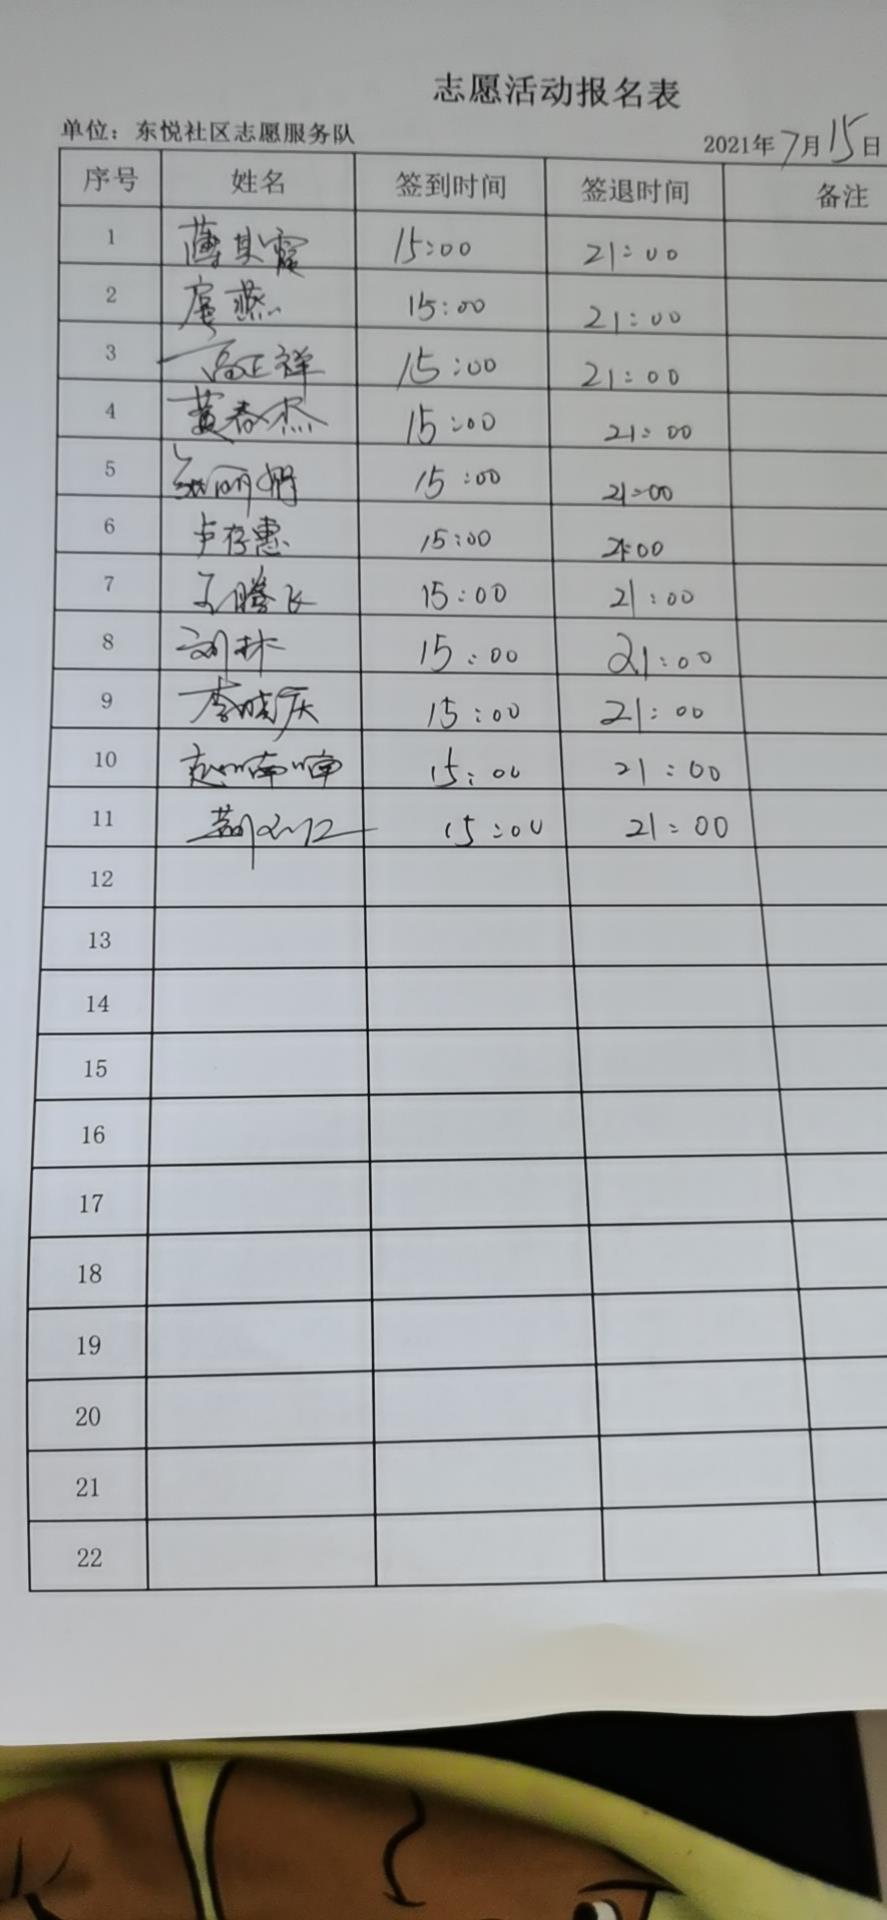 志愿活动报名表
单位：东悦社区志愿服务队 2021年7月15日
序号 姓名 签到时间 签退时间 备注
1 薄其霞 15:00 21:00
2 15:00 21:00
3 高正祥 15:00 21:00
4 黄春杰 15:00 21:00
5 15:00 21:00
6 卢存惠 15:00 21:00
7 王腾飞 15:00 21:00
8 刘林 15:00 21:00
9 李晓庆 15:00 21:00
10 赵喃喃 15:00 21:00
11 15:00 21:00
12
13
14
15
16
17
18
19
20
21
22